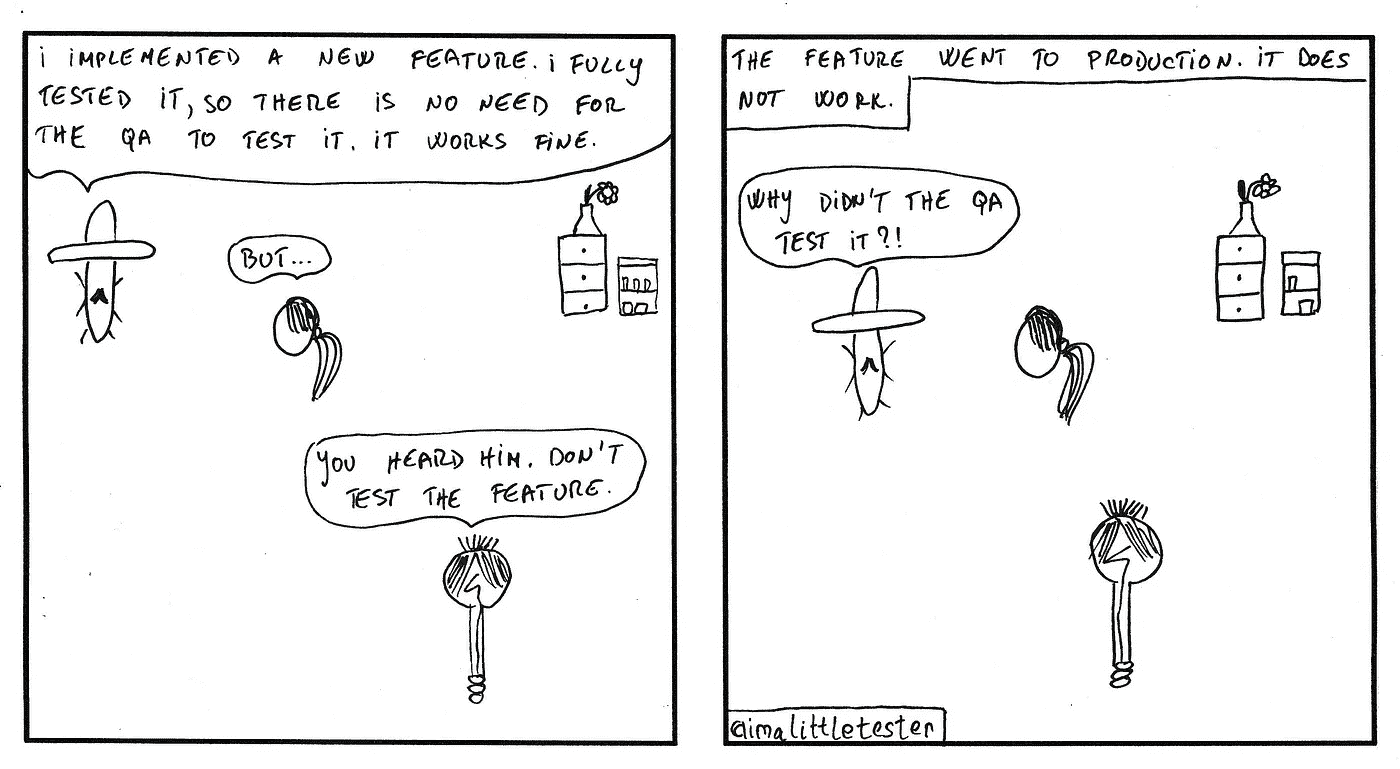 i iMPLEMENTED A NEW FEATURE. i FULLY
TESTED iT, SO THERE iS NO NEED FOR
THE QA TO TEST iT. iT WORKS FiNE.
BUT...
YOU HEARD HiM. DON'T
TEST THE FEATURE.
THE FEATURE WENT TO PRODUCTiON. iT DOES
NOT WORK.
WHY DiDN'T THE QA
TEST iT?!
@imalittletester